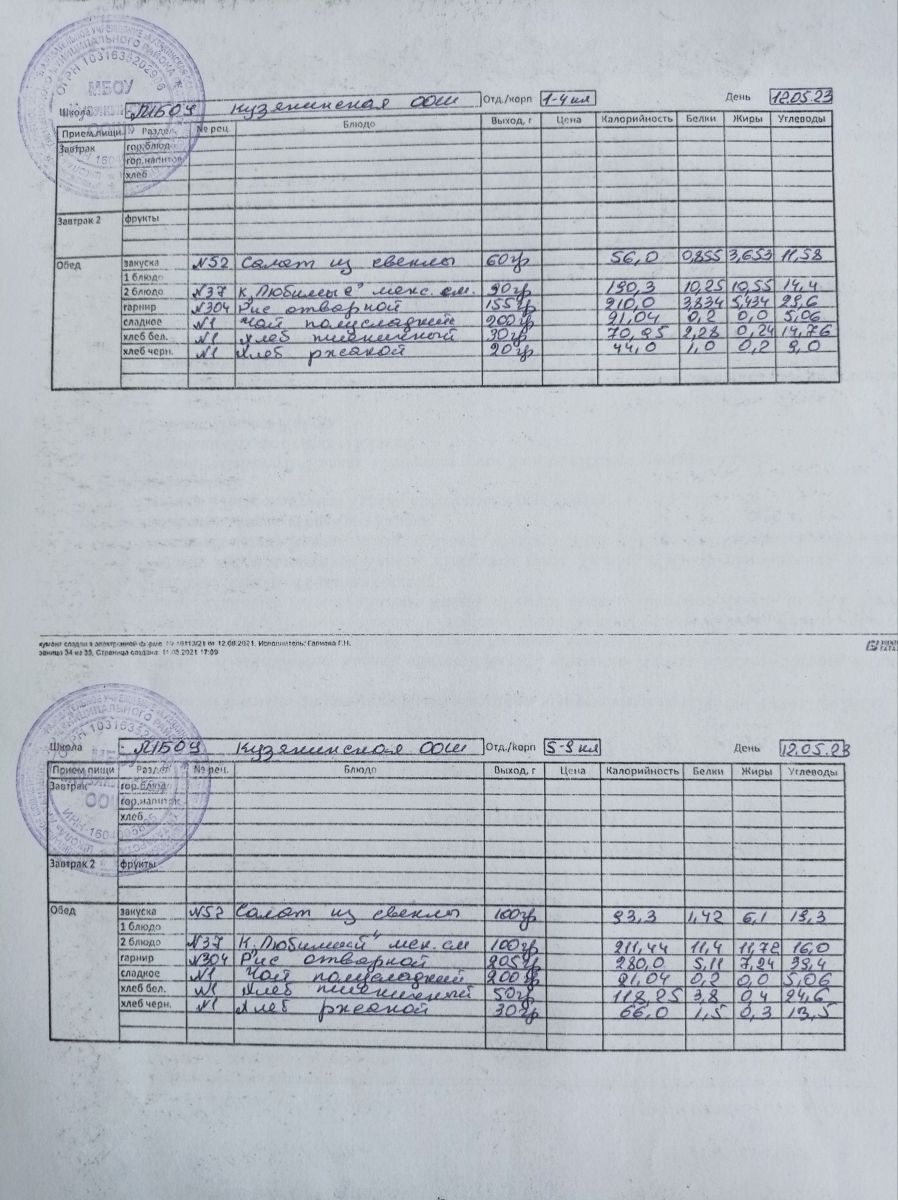 МБОУ
ОГРН 103163520296
Школа МБОУ Кузякинская ООШ Отд./корп 1-4 кл День 12.05.23
Прием пищи Раздел № рец. Блюдо Выход, г Цена Калорийность Белки Жиры Углеводы
Завтрак гор.блюдо
гор.напиток
хлеб
Завтрак 2 фрукты
Обед закуска №52 Салат из свеклы 60гр 56,0 0,855 3,653 11,58
1 блюдо
2 блюдо №37 К. Любимые" мяс. см. 90гр 190,3 10,25 10,55 14,4
гарнир №304 Рис отварной 155гр 210,0 3,834 5,434 29,6
сладкое №1 Чай полусладкий 200гр 21,04 0,2 0,0 5,06
хлеб бел. №1 Хлеб пшеничный 30гр 70,95 2,28 0,24 14,76
хлеб черн. №1 Хлеб ржаной 20гр 44,0 1,0 0,2 9,0
12.08.2021. Исполнитель: Гапиева Г.Н.
Страница 34 из 35. Страница создана: 11.08.2021 17:09
Школа МБОУ Кузякинская ООШ Отд./корп 5-9 кл День 12.05.23
Прием пищи Раздел № рец. Блюдо Выход, г Цена Калорийность Белки Жиры Углеводы
Завтрак гор.блюдо
гор.напиток
хлеб
Завтрак 2 фрукты
Обед закуска №52 Салат из свеклы 100гр 93,3 1,42 6,1 19,3
1 блюдо
2 блюдо №37 К. Любимый" мяс. см 100гр 211,44 11,4 11,72 16,0
гарнир №304 Рис отварной 205гр 280,0 5,11 7,24 39,4
сладкое №1 Чай полусладкий 200гр 21,04 0,2 0,0 5,06
хлеб бел. №1 Хлеб пшеничный 50гр 118,25 3,8 0,4 24,6
хлеб черн. №1 Хлеб ржаной 30гр 66,0 1,5 0,3 13,5